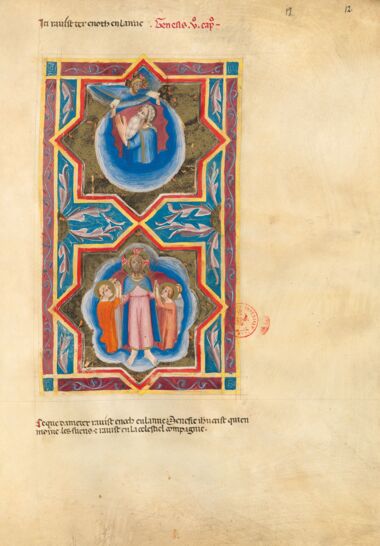 Ici rauist ter enoth en lanue Genesis V cap
12 12
Ce que dameter rauist enoch en lanue Senefie ihu crist qui en
moine les suens ⁊ rauist en la celestiel compagnie.